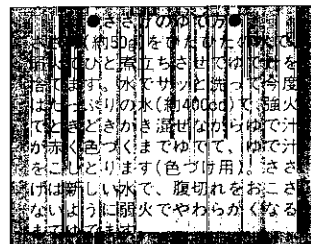 ●ささげのゆで方●
ささげ(約50g)をひたひたの水で
強火でひと煮立ちさせてゆで汁を
捨てます。水でサッと洗って今度
はたっぷりの水(約400cc)で、強火
でときどきかき混ぜながらゆで汁
が赤く色づくまでゆでて、ゆで汁
をこしとります(色づけ用)。ささ
げは新しい水で、腹切れをおこさ
ないように弱火でやわらかくなる
までゆでます